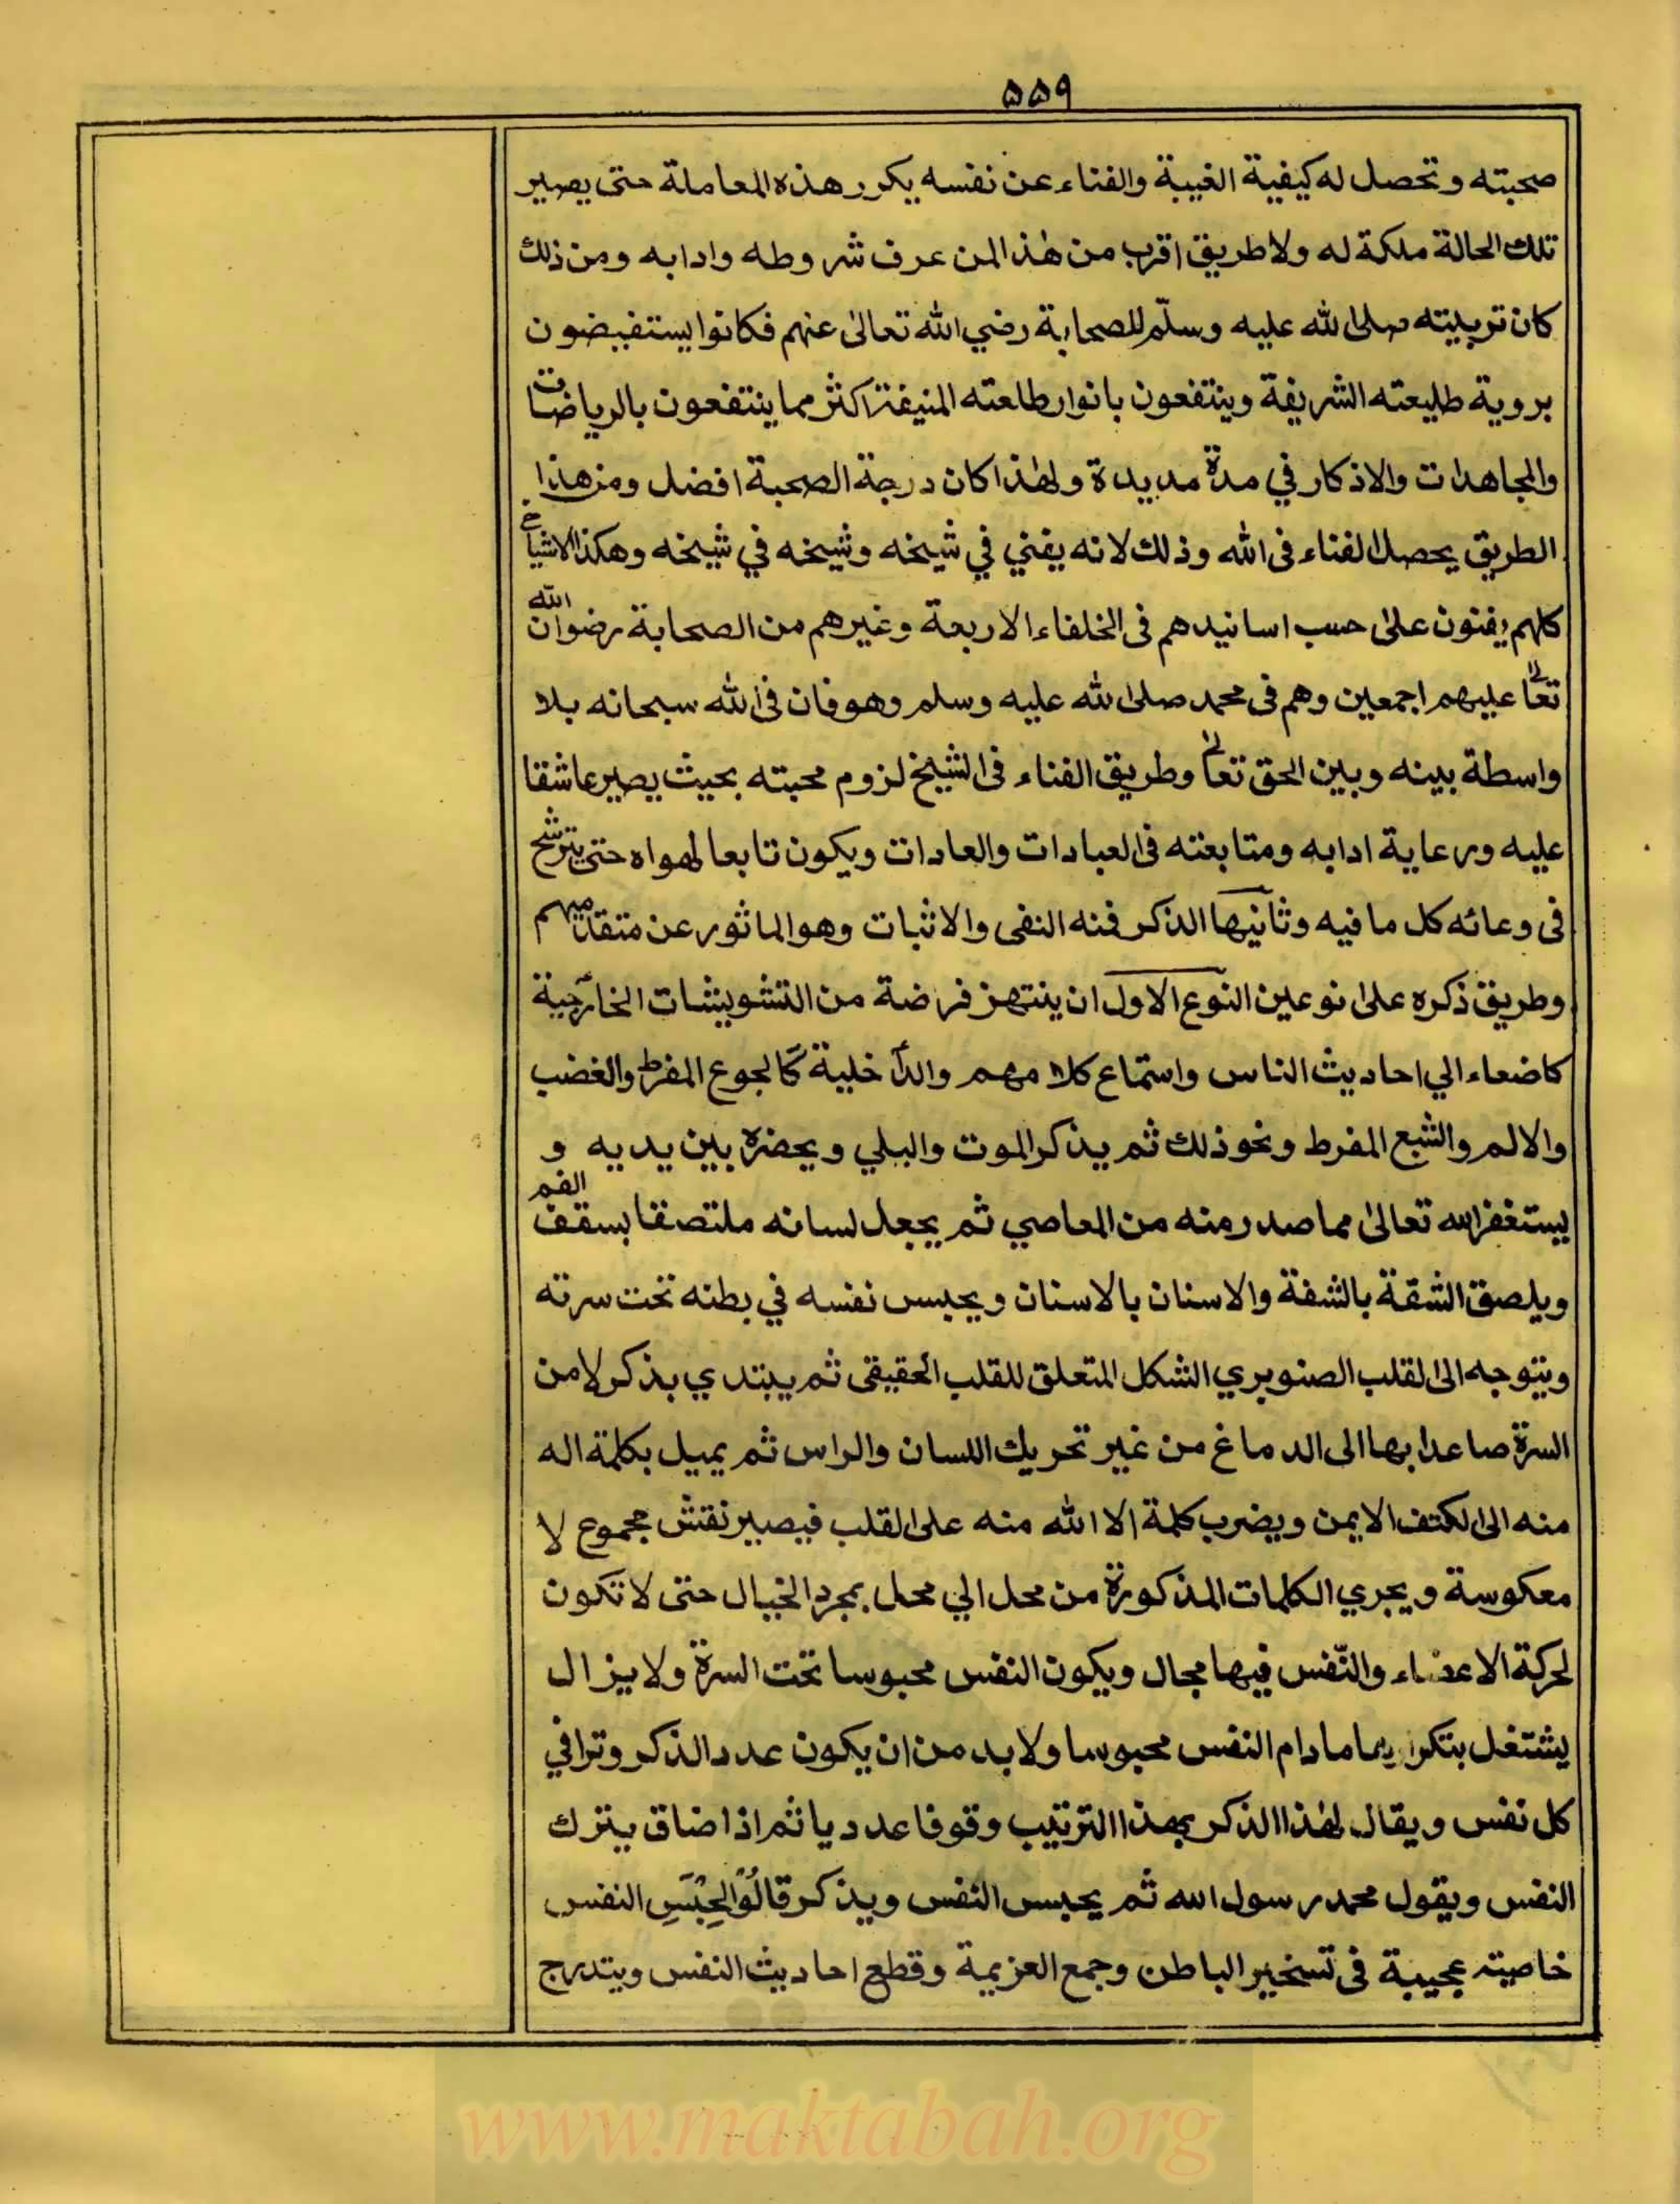 ۵۵۹
صحبته وتحصل له كيفية الغيبة والفناء عن نفسه يكرر هذه المعاملة حتى يصير
تلك الحالة ملكة له ولا طريق اقرب من هذا لمن عرف شروطه وادابه ومن ذلك
كان تربيته صلى الله عليه وسلّم للصحابة رضي الله تعالى عنهم فكانوا يستفيضون
بروية طليعته الشريفة وينتفعون بانوار طالعته المنيفة اكثر مما ينتفعون بالرياضات
والمجاهدات والاذكار في مدة مديدة ولهذا كان درجة الصحبة افضل ومن هذا
الطريق يحصل الفناء فى الله وذلك لانه يفني في شيخه وشيخه في شيخه وهكذا الاشياخ
كلهم يفنون على حسب اسانيدهم فى الخلفاء الاربعة وغيرهم من الصحابة رضوان الله
تعالى عليهم اجمعين وهم فى محمد صلى الله عليه وسلم وهو فان فى الله سبحانه بلا
واسطة بينه وبين الحق تعالى وطريق الفناء فى الشيخ لزوم محبته بحيث يصير عاشقا
عليه ورعاية ادابه ومتابعته فى العبادات والعادات ويكون تابعا لهواه حتى يترشح
فى وعائه كل ما فيه وثانيها الذكر فمنه النفى والاثبات وهو الماثور عن متقدميهم
وطريق ذكره على نوعين النوع الاول ان ينتهز فرضة من التشويشات الخارجية
كاضعاء الي احاديث الناس واستماع كلامهم والداخلية كالجوع المفرط والغضب
والالم والشبع المفرط ونحو ذلك ثم يذكر الموت والبلي ويحضره بين يديه و
يستغفر الله تعالى مما صدر منه من المعاصي ثم يجعل لسانه ملتصقا بسقف الفم
ويلصق الشفة بالشفة والاسنان بالاسنان ويحبس نفسه في بطنه تحت سرته
ويتوجه الى القلب الصنوبري الشكل المتعلق للقلب الحقيقى ثم يبتدي بذكر لا من
السرة صاعدا بها الى الدماغ من غير تحريك اللسان والراس ثم يميل بكلمة اله
منه الى الكتف الايمن ويضرب كلمة الا الله منه على القلب فيصير نقش مجموع لا
معكوسة ويجري الكلمات المذكورة من محل الي محل بمجرد الخيال حتى لا تكون
لحركة الاعضاء والنّفس فيها مجال ويكون النفس محبوسا تحت السرة ولا يزال
يشتغل بتكرارها مادام النفس محبوسا ولا بد من ان يكون عدد الذكر وترا في
كل نفس ويقال لهذا الذكر بهذا الترتيب وقوفا عدديا ثم اذا ضاق يترك
النفس ويقول محمد رسول الله ثم يحبس النفس ويذكر قالُوْا لِحِبْسِ النفس
خاصية عجيبة فى تسخير الباطن وجمع العزيمة وقطع احاديث النفس ويتدرج
www.maktabah.org